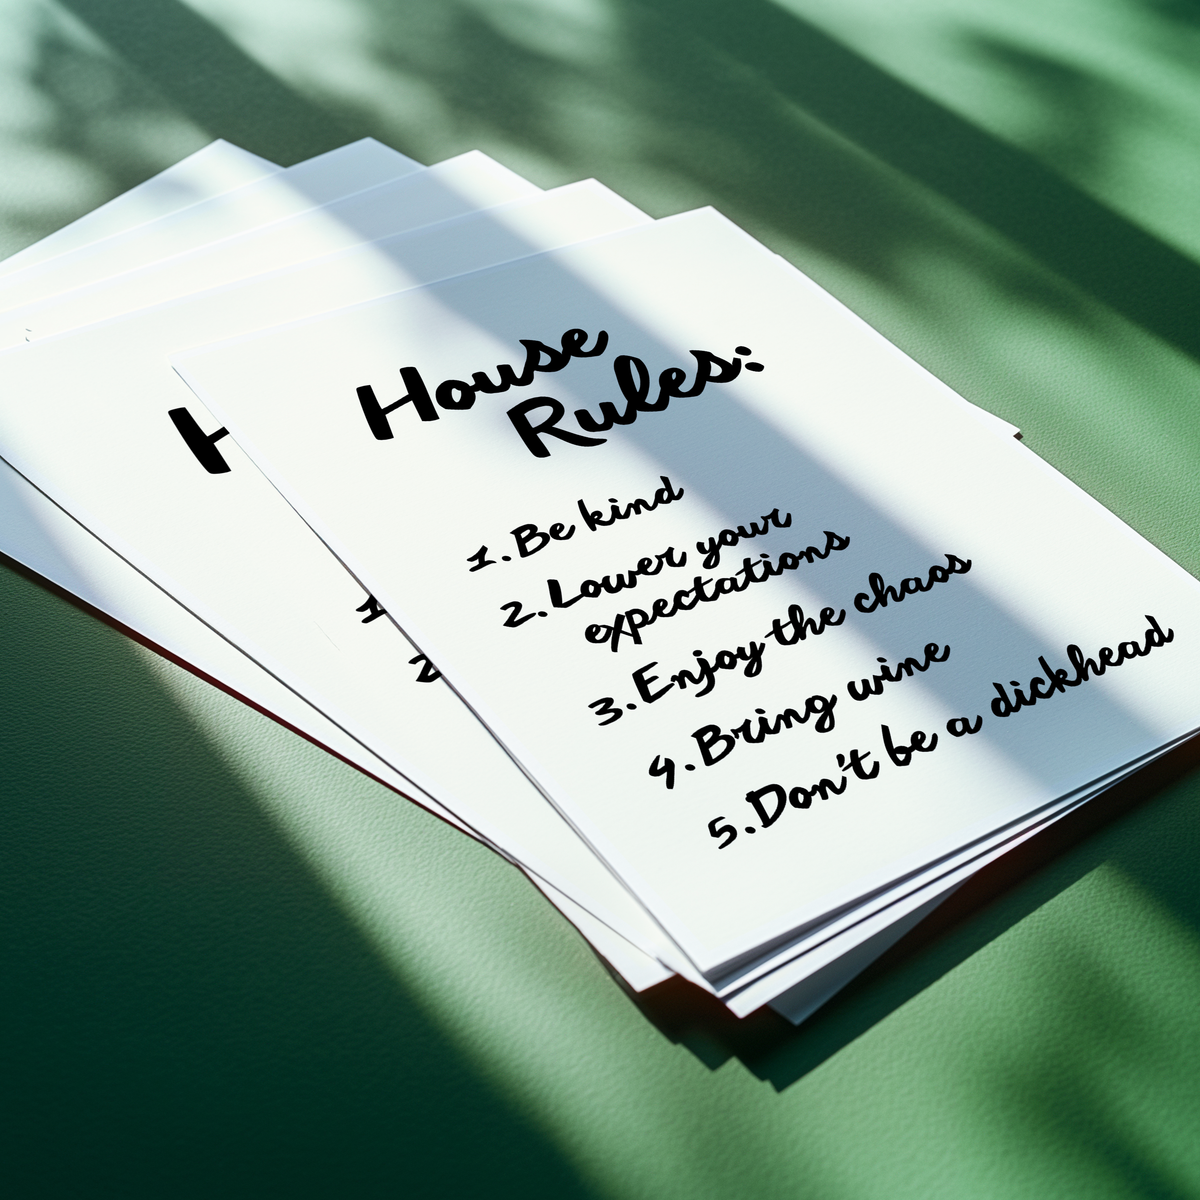 House
Rules:
1. Be kind
2. Lower your
expectations
3. Enjoy the chaos
4. Bring wine
5. Don't be a dickhead
H
1
2